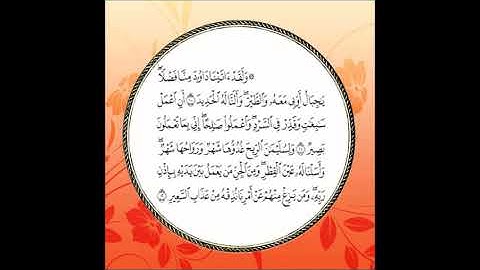 ۞ وَلَقَدْ ءَاتَيْنَا دَاوُۥدَ مِنَّا فَضْلًا ۖ
يَٰجِبَالُ أَوِّبِى مَعَهُۥ وَٱلطَّيْرَ ۖ وَأَلَنَّا لَهُ ٱلْحَدِيدَ ١٠ أَنِ ٱعْمَلْ
سَٰبِغَٰتٍ وَقَدِّرْ فِى ٱلسَّرْدِ ۖ وَٱعْمَلُوا۟ صَٰلِحًا ۖ إِنِّى بِمَا تَعْمَلُونَ
بَصِيرٌ ١١ وَلِسُلَيْمَٰنَ ٱلرِّيحَ غُدُوُّهَا شَهْرٌ وَرَوَاحُهَا شَهْرٌ ۖ
وَأَسَلْنَا لَهُۥ عَيْنَ ٱلْقِطْرِ ۖ وَمِنَ ٱلْجِنِّ مَن يَعْمَلُ بَيْنَ يَدَيْهِ بِإِذْنِ
رَبِّهِۦ ۖ وَمَن يَزِغْ مِنْهُمْ عَنْ أَمْرِنَا نُذِقْهُ مِنْ عَذَابِ ٱلسَّعِيرِ ١٢